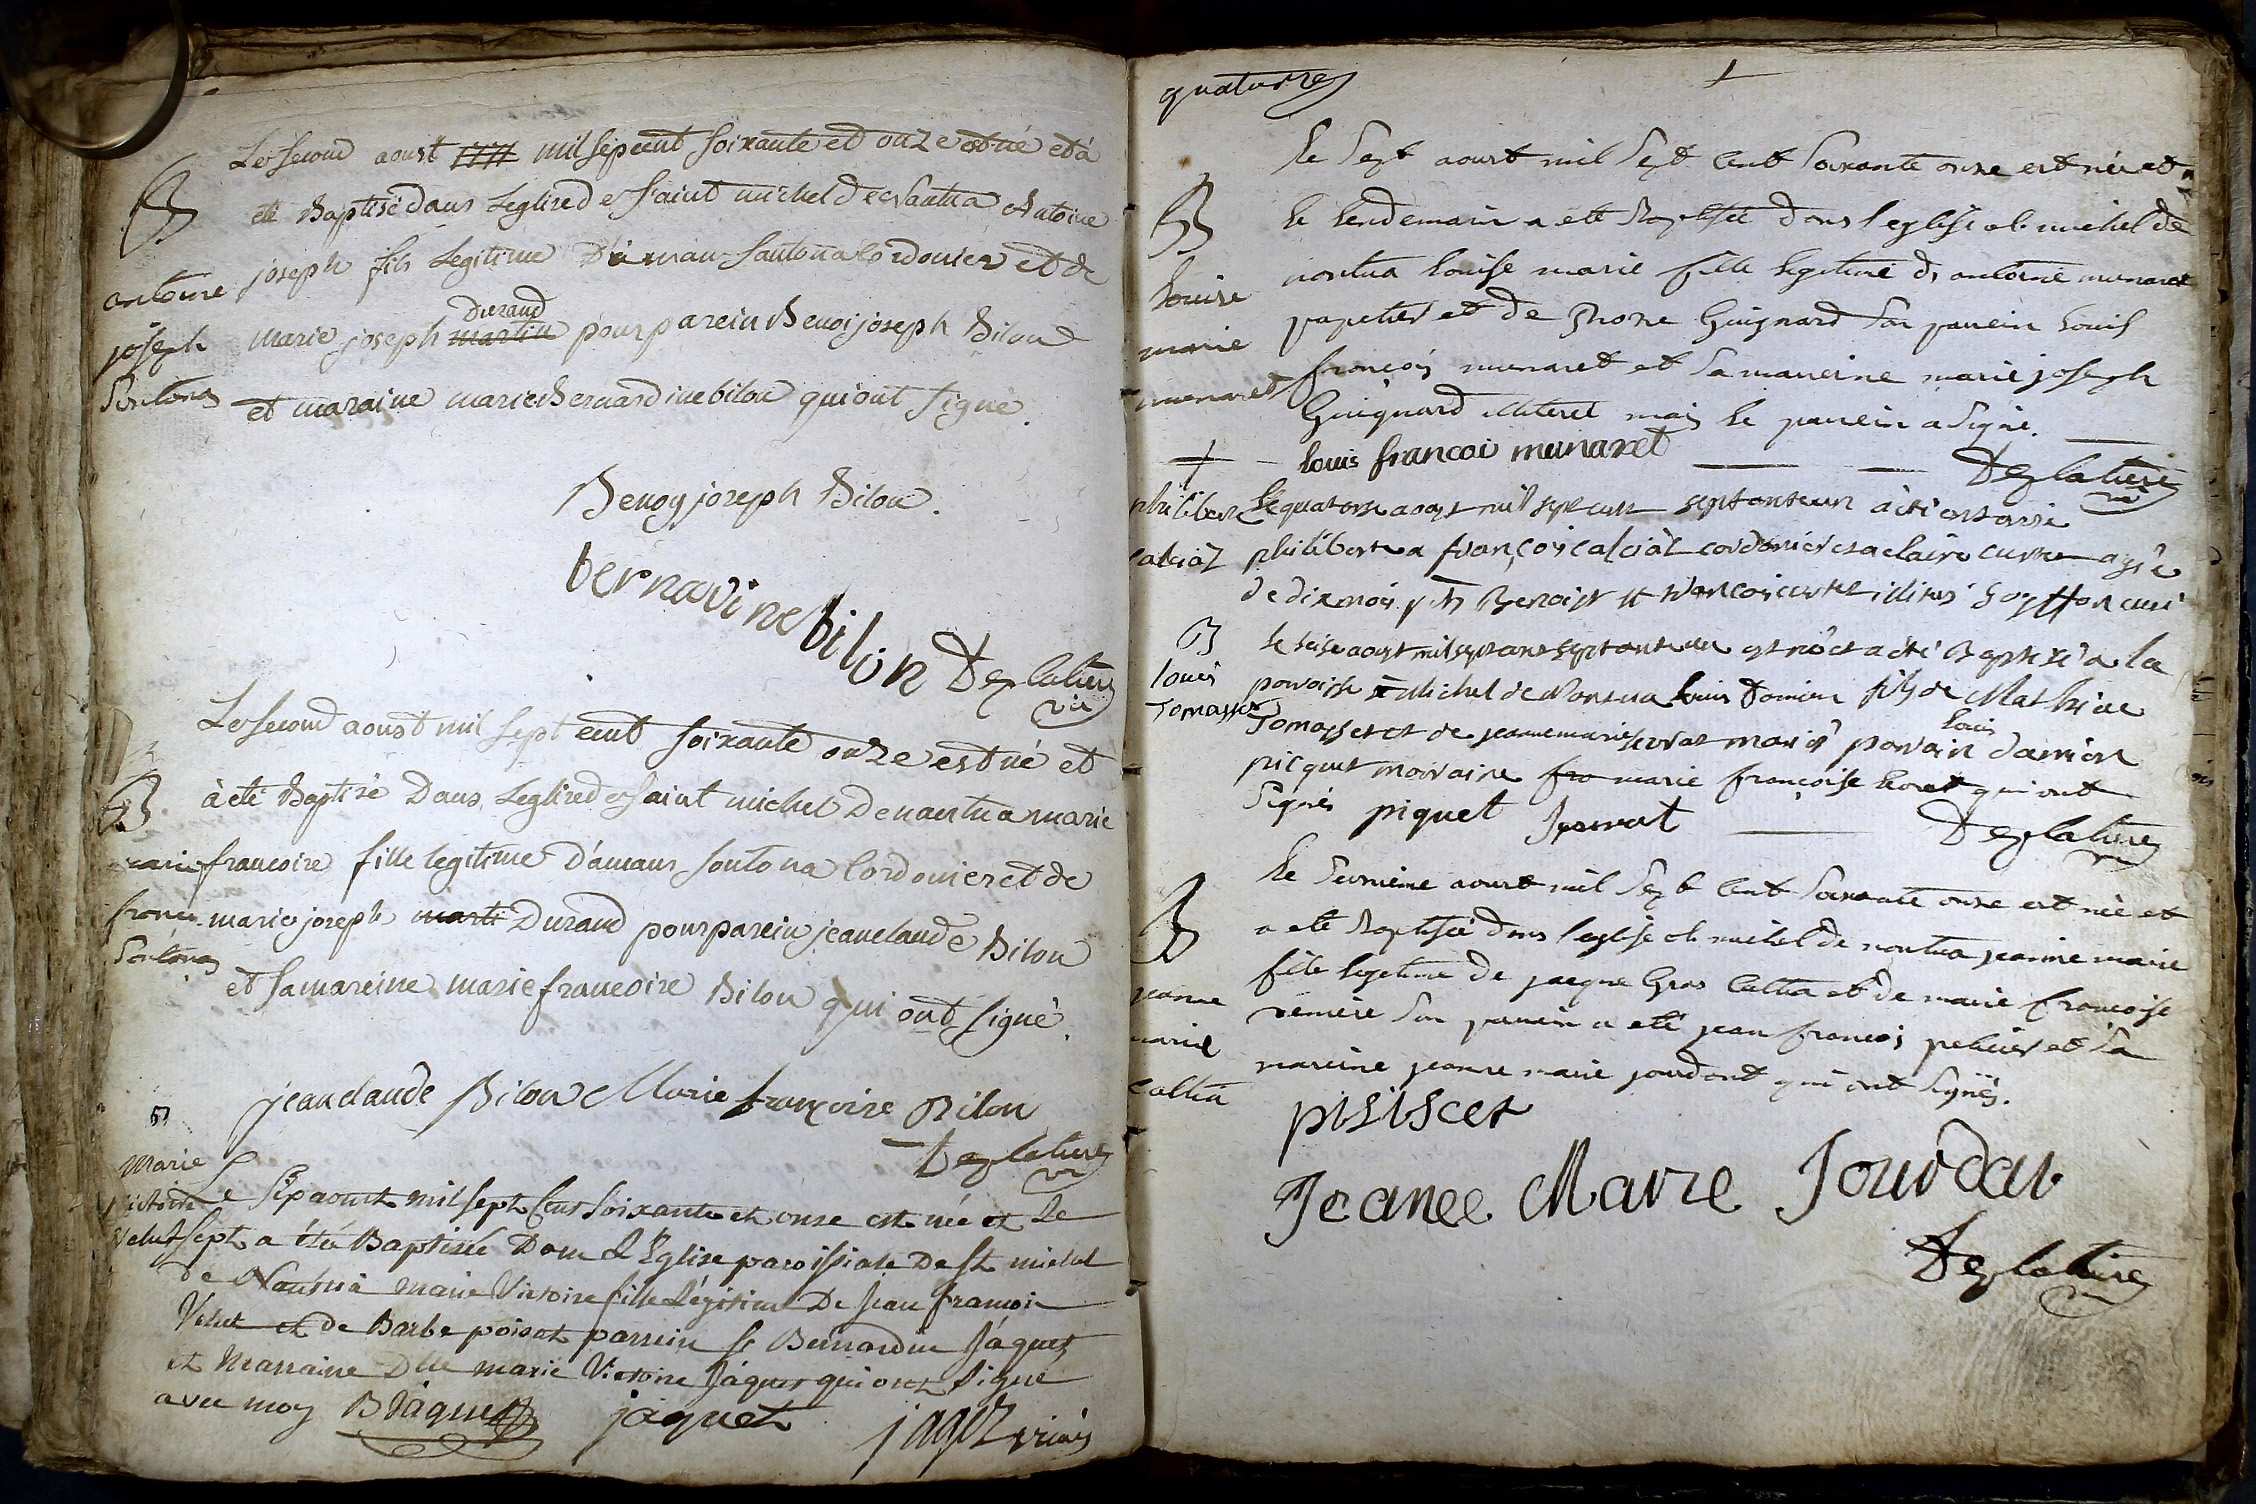 B
antoine
joseph
Sontona
Le second aoust 1771 mil sepcent soixante et onze est né et à
eté Baptisé dans Leglise de saint michel de Nantua Antoine
joseph fils Legitime D'aman Sontona Cordonier et de
durand
marie joseph martin pour parein Benoi joseph Bilon
et maraine marie Bernardine bilon qui ont signé.
Benoy joseph Bilon.
bernavine bilon Deglatiere
vic
B
marie
francoise
Sontona
Le second aoust mil sept cent soixante onze est né et
à eté Baptisé Dans Leglise de saint michel De nantua marie
francoise fille legitime D'amans sontona Cordonier et de
marie joseph marti Durand pour parein jean claude Bilon
et sa mareine marie francoise Bilon qui ont signé.
jean claude Bilon Marie françoise Bilon
Deglatiere
vic
B
Marie
Victoire
Velut
Le six aoust mil sept cent soixante et onze est née et Le
sept a été Baptisée Dans L'Eglise paroissiale De St michel
de Nantua marie Victoire fille Légitime De jean françois
Velut et de Barbe poisat parrein sr Bernardin Jáquet
et Marraine Dlle marie Victoire Jáquet qui ont signé
avec moy B Jáquet jáquet jagoz vicaire
quatorze
B
Louise
marie
munaret
Le Sept aoust mil Sept Cent Soixante onze est née et
Le Lendemain a eté Baptisée dans l'eglise st michel de
nantua Louise marie fille legitime d'antoine munaret
papetier et de Guignard Son parrein Louis
françois munaret et Sa mareine marie joseph
Guignard illiteret mais le parrein a Signé.
Louis francoi munaret Deglatiere
vic
philiberte
calciat
Le quatorse aoust mil sept cent septante un à eté enterré
philiberte a françois calciat cordonier et a claire curtet agée
de dix mois pnt Benoist et françois curtet illiterés Goyffon curé
B
Louis
Tomasset
le seise aoust mil sept cent septante un est né et a eté Baptisé a la
paroisse st Michel de Nantua Louis Damien fils de Mathieu
Tomasset et de jeanne marie mariés parrain Louis damien
picquet marraine fra marie françoise qui ont
Signés piquet Deglatiere
B
jeanne
marie
Calliat
Le aoust mil Sept Cent Soixante onze est née et
a eté Baptisée dans l'eglise st michel de nantua jeanne marie
fille legitime de jacque Gros et de marie francoise
Son parrein a eté jean francois et Sa
mareine jeanne marie jourdant qui ont Signés.
Jeanee Marie Jourdau
Deglatiere